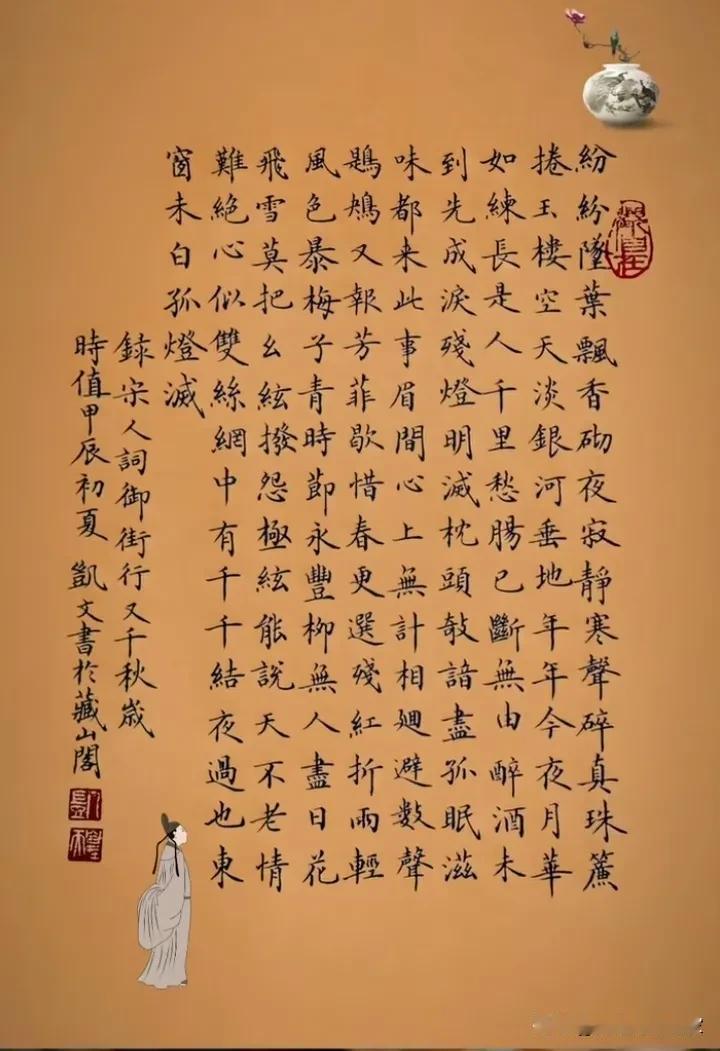 紛紛墜葉飄香砌夜寂靜寒聲碎真珠簾
捲玉樓空天淡銀河垂地年年今夜月華
如練長是人千里愁腸已斷無由醉酒未
到先成淚殘燈明滅枕頭敧諳盡孤眠滋
味都来此事眉間心上無計相廻避數聲
鶗鴂又報芳菲歇惜春更選殘紅折雨輕
風色暴梅子青時節永豐柳無人盡日花
飛雪莫把幺絃撥怨極絃能説天不老情
難絶心似雙絲網中有千千結夜過也東
窗未白孤燈滅
錄宋人詞御街行又千秋歲
時值甲辰初夏 凱文書於藏山閣